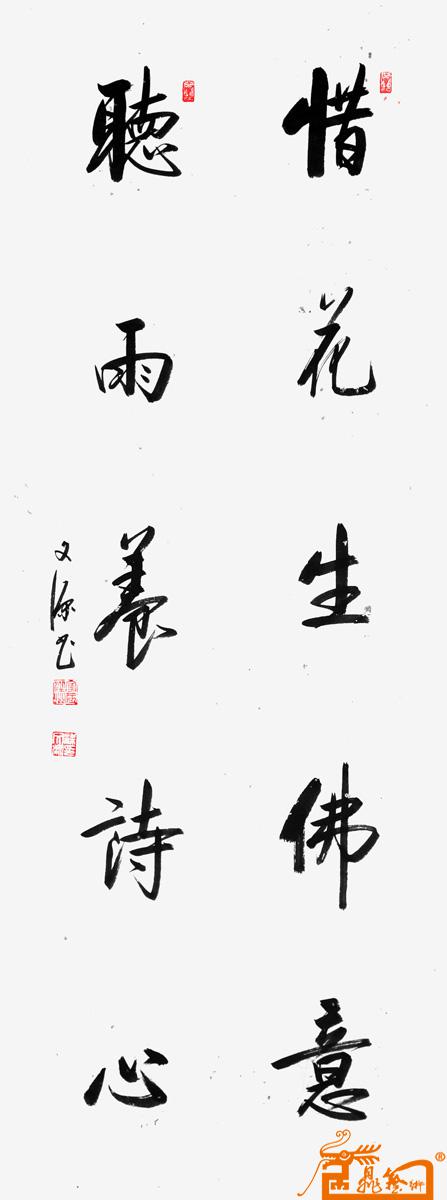 惜花生佛意
聽雨養詩心
文源书